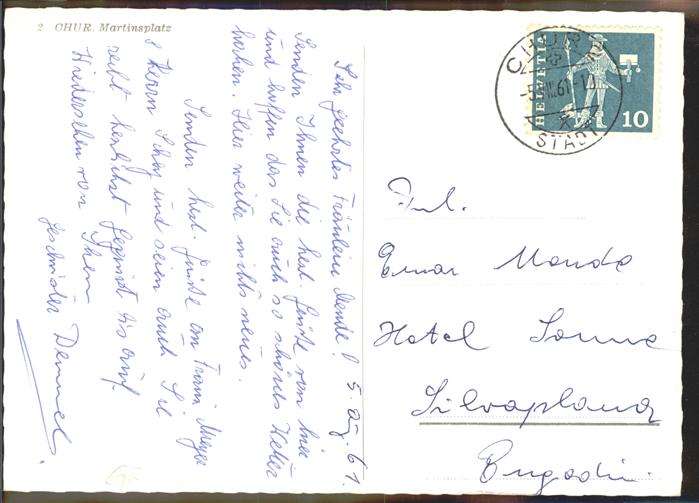 2 CHUR. Martinsplatz
5. Aug. 61.
Sehr geehrtes Fräulein Mende!
Senden Ihnen die herzl. Grüße von hier
und hoffen das Sie auch so schönes Wetter
haben. Hier weiter nichts neues.
Senden herzl. Grüße an Frau Meyer
& Herrn Schoy und seien auch Sie
recht herzlichst gegrüsst bis aufs
Wiedersehen von Ihren
Geschwister Demmel.
HELVETIA
10
CHUR 2
STADT
Frl.
Mende
Hotel Sonne
Silvaplana
Engadin.